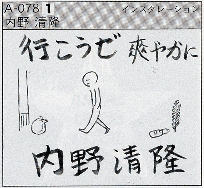 A-078 1 インスタレーション
内野 清隆
行こうぜ 爽やかに
内野清隆